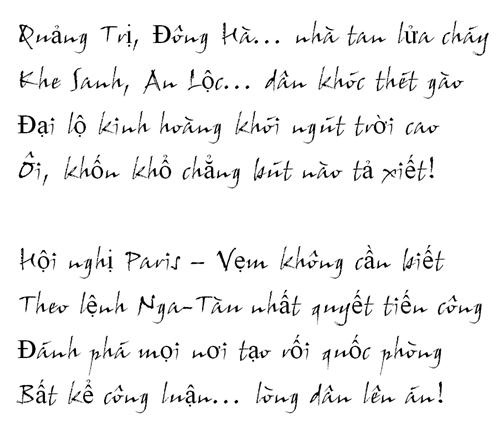 Quảng Trị, Đông Hà... nhà tan lửa cháy
Khe Sanh, An Lộc... dân khóc thét gào
Đại lộ kinh hoàng khói ngút trời cao
Ôi, khốn khổ chẳng bút nào tả xiết!
Hội nghị Paris – Vẹm không cần biết
Theo lệnh Nga-Tàu nhất quyết tiến công
Đánh phá mọi nơi tạo rối quốc phòng
Bất kể công luận... lòng dân lên án!